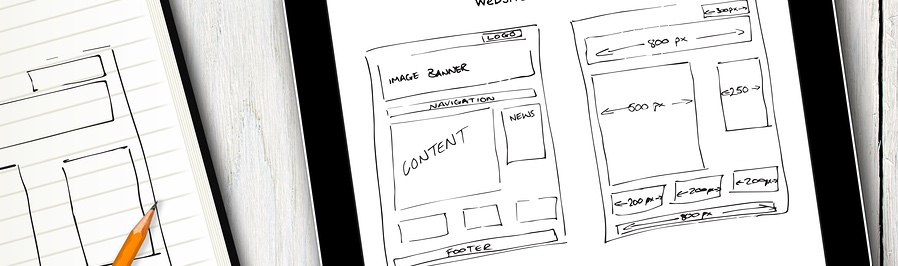 WEBSITE
LOGO
IMAGE BANNER
NAVIGATION
CONTENT
NEWS
FOOTER
300px
800 px
500 px
250
200 px
200px
200px
800 px